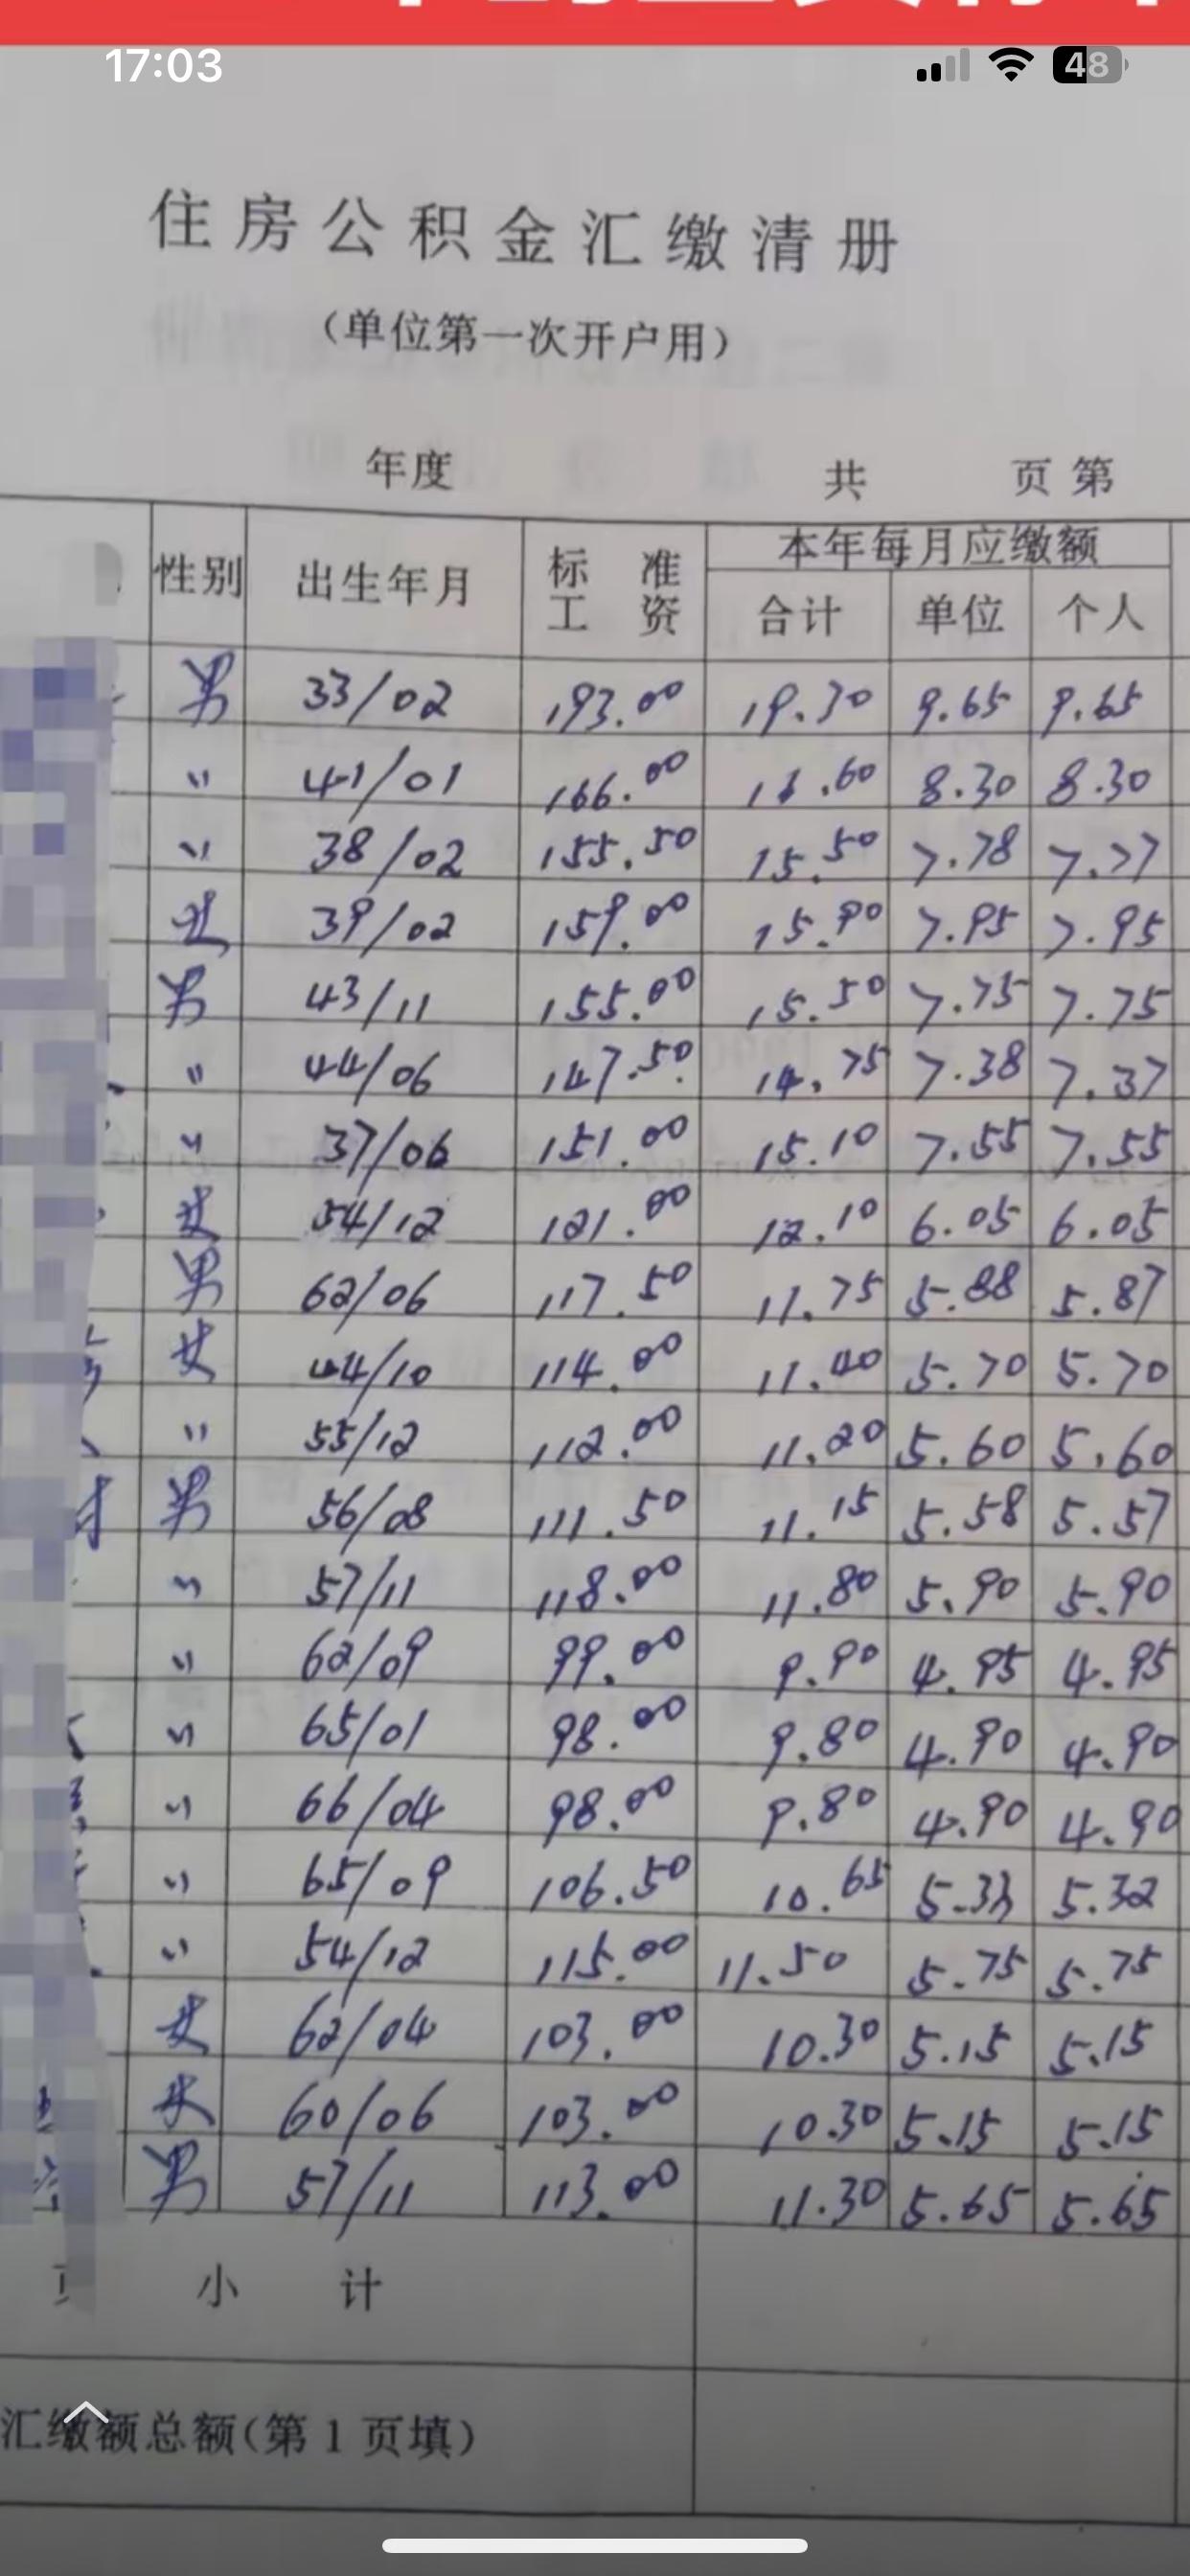 17:03
48
住房公积金汇缴清册
（单位第一次开户用）
年度 共 页 第
性别 出生年月 标准工资 本年每月应缴额
合计 单位 个人
男 33/02 193.00 19.30 9.65 9.65
〃 41/01 166.00 16.60 8.30 8.30
〃 38/02 155.50 15.50 7.78 7.77
女 39/02 159.00 15.90 7.95 7.95
男 43/11 155.00 15.50 7.75 7.75
〃 44/06 147.50 14.75 7.38 7.37
〃 37/06 151.00 15.10 7.55 7.55
女 54/12 121.00 12.10 6.05 6.05
男 62/06 117.50 11.75 5.88 5.87
女 44/10 114.00 11.40 5.70 5.70
〃 55/12 112.00 11.20 5.60 5.60
男 56/08 111.50 11.15 5.58 5.57
〃 57/11 118.00 11.80 5.90 5.90
〃 62/09 99.00 9.90 4.95 4.95
〃 65/01 98.00 9.80 4.90 4.90
〃 66/04 98.00 9.80 4.90 4.90
〃 65/09 106.50 10.65 5.33 5.32
〃 54/12 115.00 11.50 5.75 5.75
女 62/04 103.00 10.30 5.15 5.15
女 60/06 103.00 10.30 5.15 5.15
男 57/11 113.00 11.30 5.65 5.65
小计
汇缴额总额（第1页填）